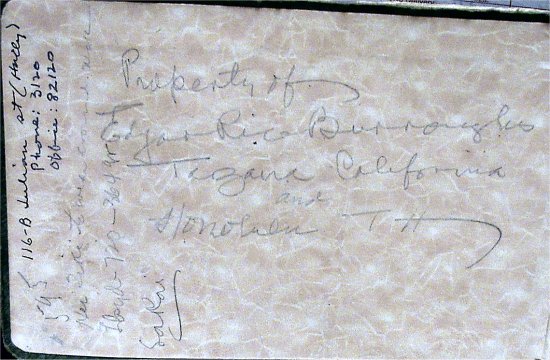 Property of
Edgar Rice Burroughs
Tarzana California
and
Honolulu T H
116-B Julian st (Holly)
Phone: 3120
Office: 82120
Sakai